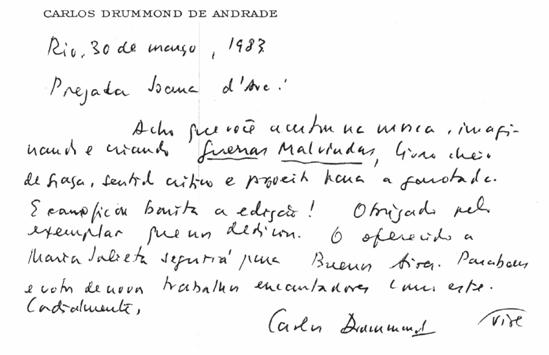 CARLOS DRUMMOND DE ANDRADE
Rio, 30 de março, 1983
Prezada Joana d'Arc:
Acho que você acertou na mosca, imagi-
nando e criando Guerras Malvindas, livro cheio
de graça, sentido crítico e proveito para a garotada.
E como ficou bonita a edição! Obrigado pelo
exemplar que me dedicou. O oferecido a
Maria Julieta seguirá para Buenos Aires. Parabens
e votos de novos trabalhos encantadores como este.
Cordialmente,
Carlos Drummond